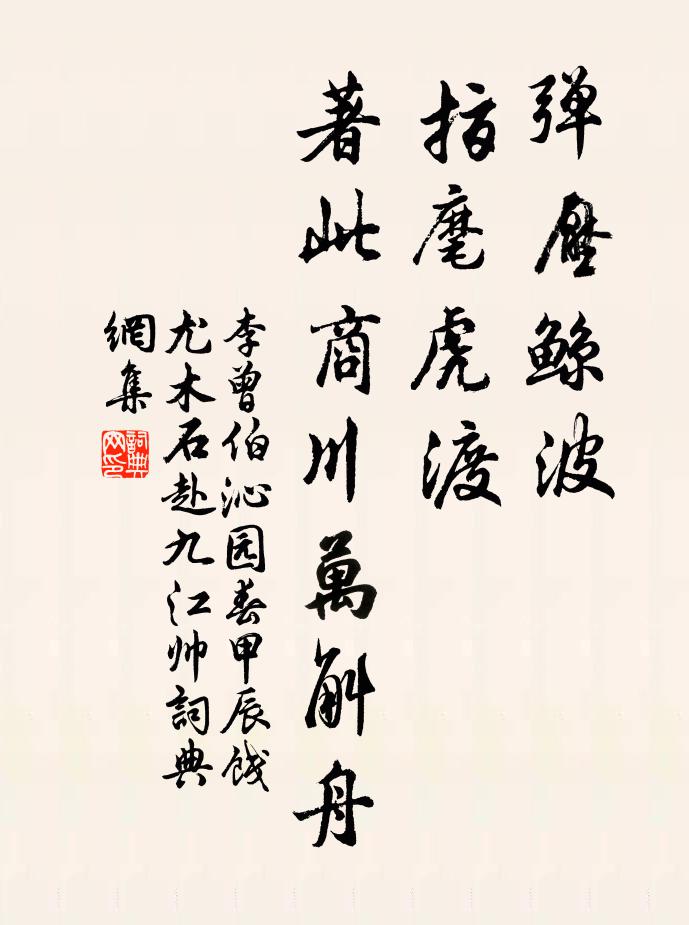 弹壓鲸波
指麾虎渡
著此商川萬斛舟
李曾伯沁园春甲辰饯
尤木石赴九江帅詞典
網集
詞典网印